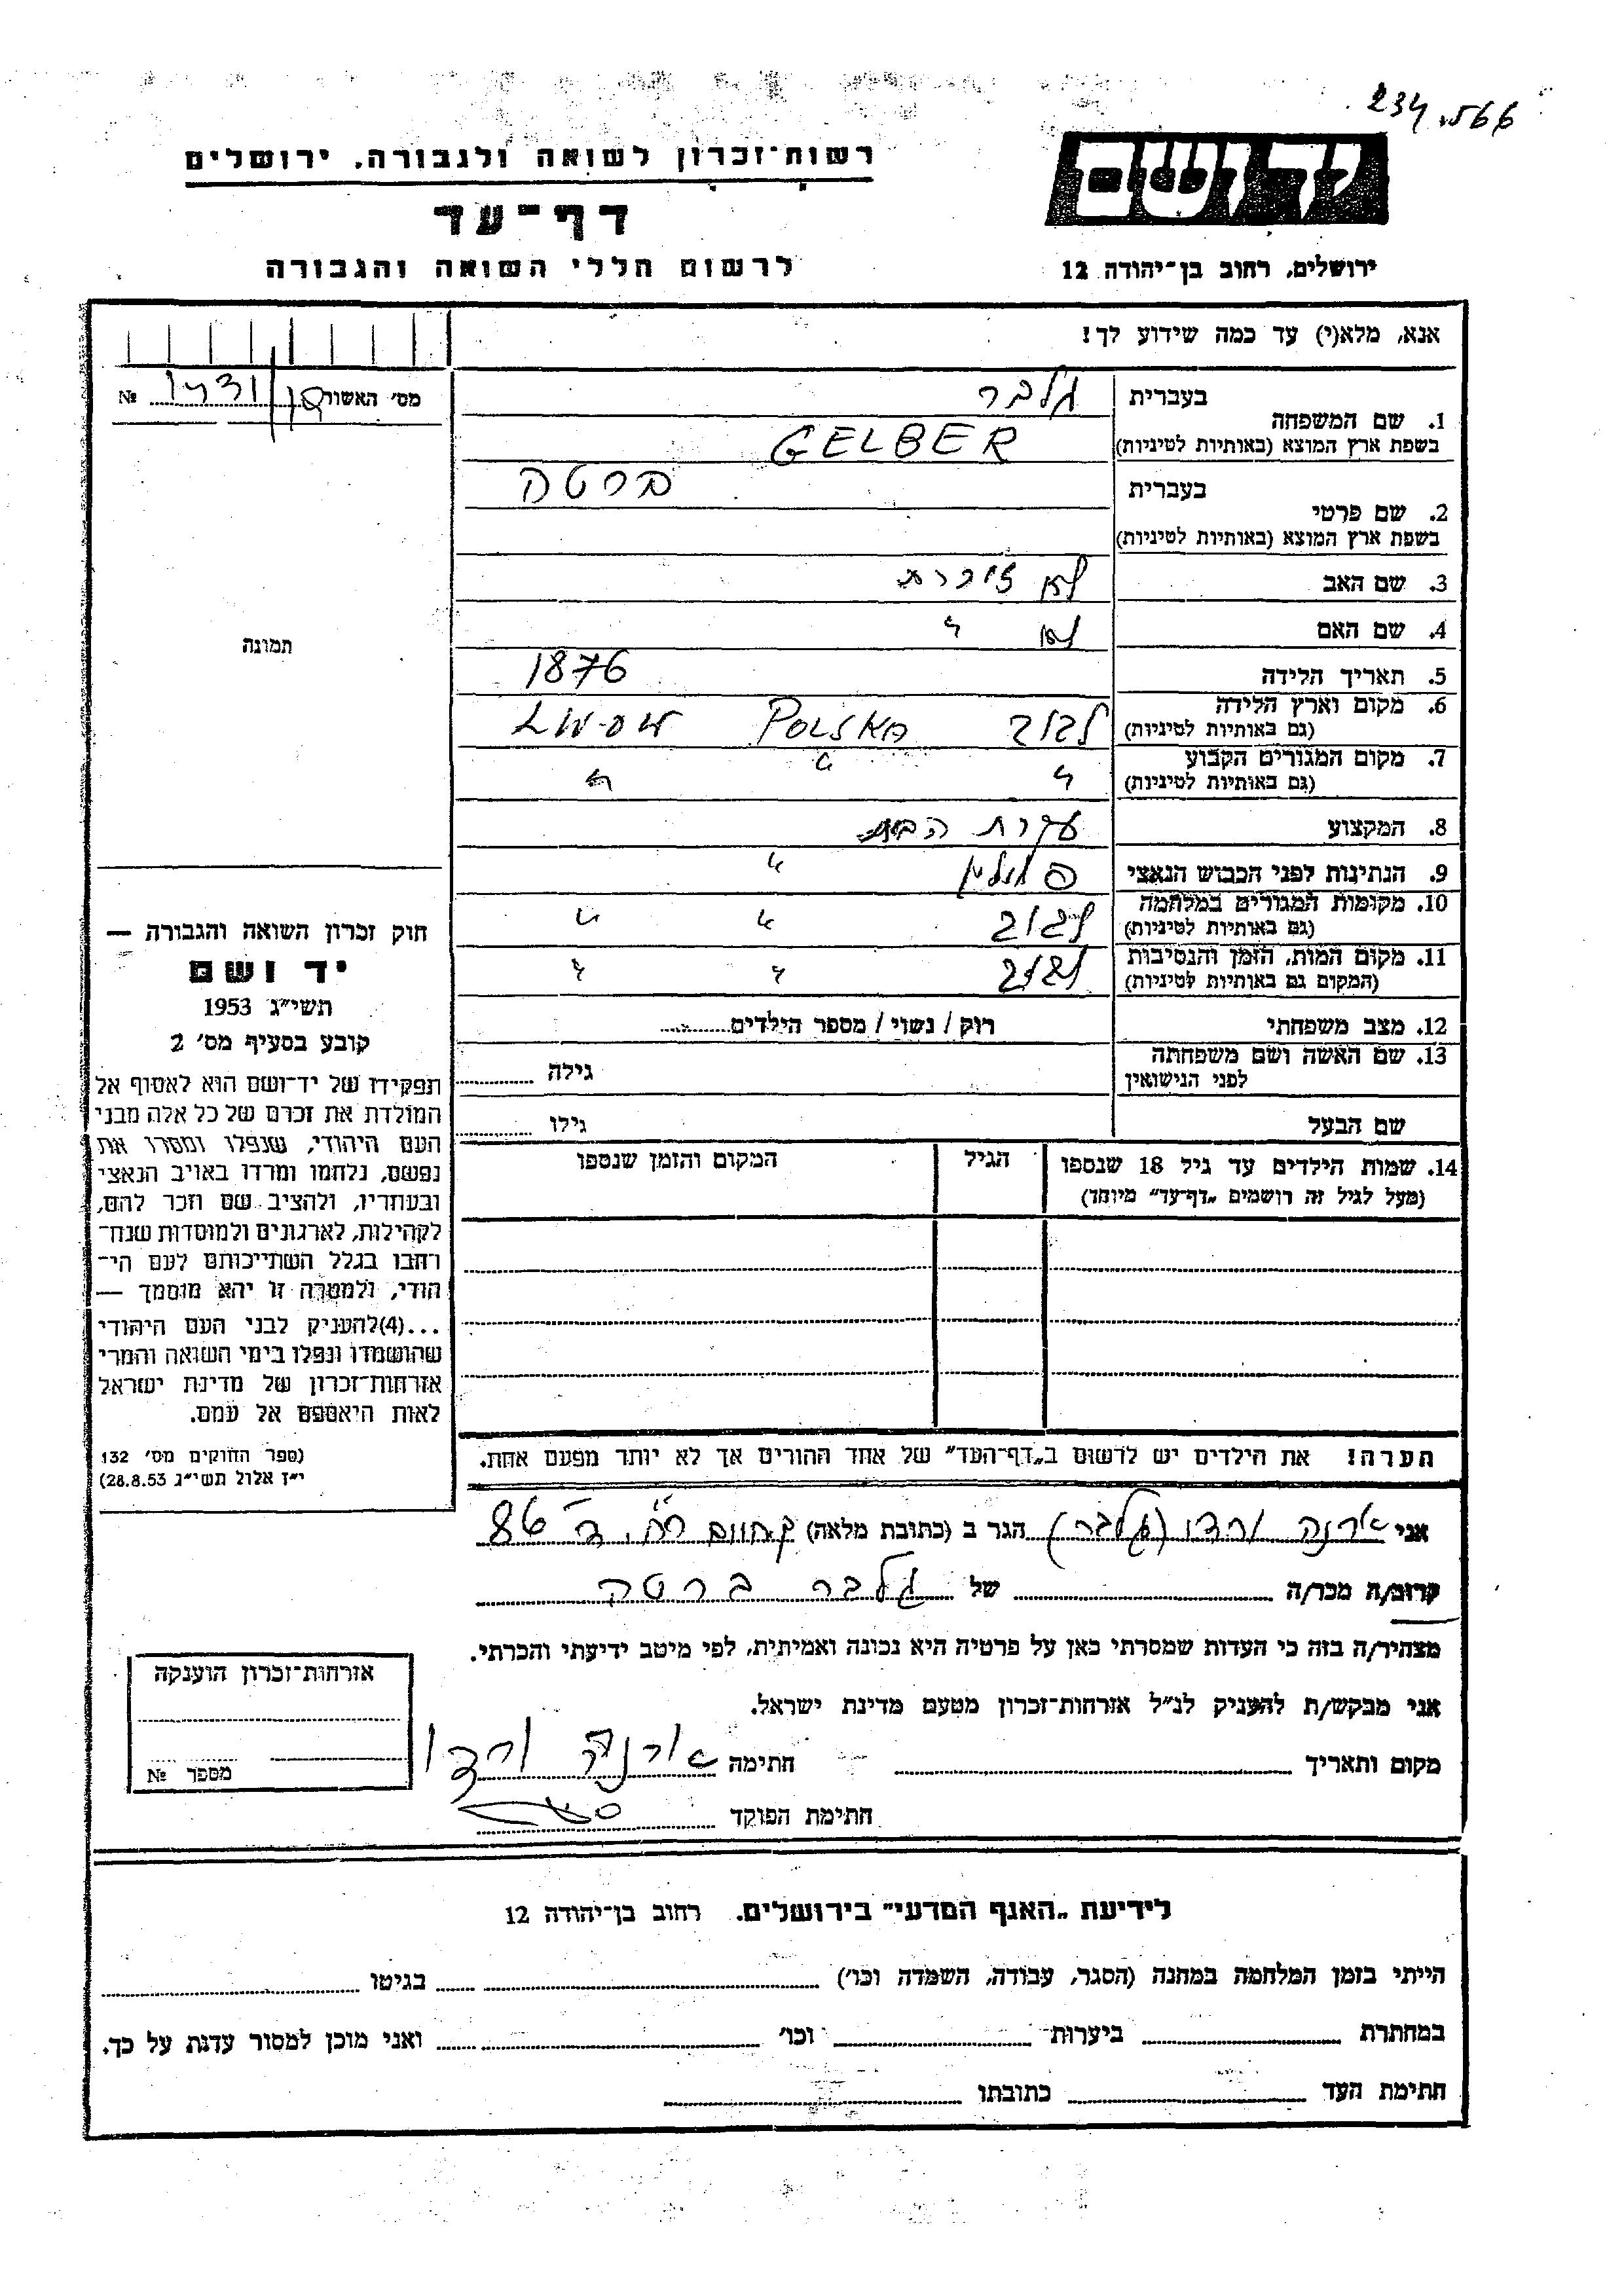 234.566
רשות־זכרון לשואה ולגבורה. ירושלים
יד ושם
דף־עד
לרשום חללי השואה והגבורה
ירושלים, רחוב בן־יהודה 12
אנא, מלא(י) עד כמה שידוע לך!
מס׳ האשור №
1. שם המשפחה
בעברית גלבר
בשפת ארץ המוצא (באותיות לטיניות) GELBER
2. שם פרטי
בעברית ברטה
בשפת ארץ המוצא (באותיות לטיניות)
3. שם האב לא זוכרת
4. שם האם לא "
5. תאריך הלידה 1876
6. מקום וארץ הלידה (גם באותיות לטיניות) לבוב POLSKA LWOW
7. מקום המגורים הקבוע (גם באותיות לטיניות) " " "
8. המקצוע עקרת הבית
9. הנתינות לפני הכבוש הנאצי פולין "
10. מקומות המגורים במלחמה (גם באותיות לטיניות) לבוב " "
11. מקום המות, הזמן והנסיבות (המקום גם באותיות לטיניות) לבוב " "
12. מצב משפחתי רוק / נשוי / מספר הילדים
13. שם האשה ושם משפחתה לפני הנישואין גילה
שם הבעל גילו
14. שמות הילדים עד גיל 18 שנספו
(מעל לגיל זה רושמים „דף־עד" מיוחד)
הגיל
המקום והזמן שנספו
תמונה
חוק זכרון השואה והגבורה —
יד ושם
תשי״ג 1953
קובע בסעיף מס׳ 2
תפקידו של יד־ושם הוא לאסוף אל
המולדת את זכרם של כל אלה מבני
העם היהודי, שנפלו ומסרו את
נפשם, נלחמו ומרדו באויב הנאצי
ובעוזריו, ולהציב שם וזכר להם,
לקהילות, לארגונים ולמוסדות שנח־
רבו בגלל השתייכותם לעם הי־
הודי, ולמטרה זו יהא מוסמך —
...(4)להעניק לבני העם היהודי
שהושמדו ונפלו בימי השואה והמרי
אזרחות־זכרון של מדינת ישראל
לאות היאספם אל עמם.
(ספר החוקים מס׳ 132
י״ז אלול תשי״ג 28.8.53)
הערה! את הילדים יש לרשום ב„דף־העד" של אחד ההורים אך לא יותר מפעם אחת.
אני ורדו (גלבר) הגר ב (כתובת מלאה) 86
קרוב/ה מכר/ה של גלבר ברטה
מצהיר/ה בזה כי העדות שמסרתי כאן על פרטיה היא נכונה ואמיתית, לפי מיטב ידיעתי והכרתי.
אני מבקש/ת להעניק לנ״ל אזרחות־זכרון מטעם מדינת ישראל.
מקום ותאריך חתימה ורדו
חתימת הפוקד
אזרחות־זכרון הוענקה
מספר №
לידיעת „האגף המדעי" בירושלים. רחוב בן־יהודה 12
הייתי בזמן המלחמה במחנה (הסגר, עבודה, השמדה וכו׳) בגיטו
במחתרת ביערות וכו׳ ואני מוכן למסור עדות על כך.
חתימת העד כתובתו